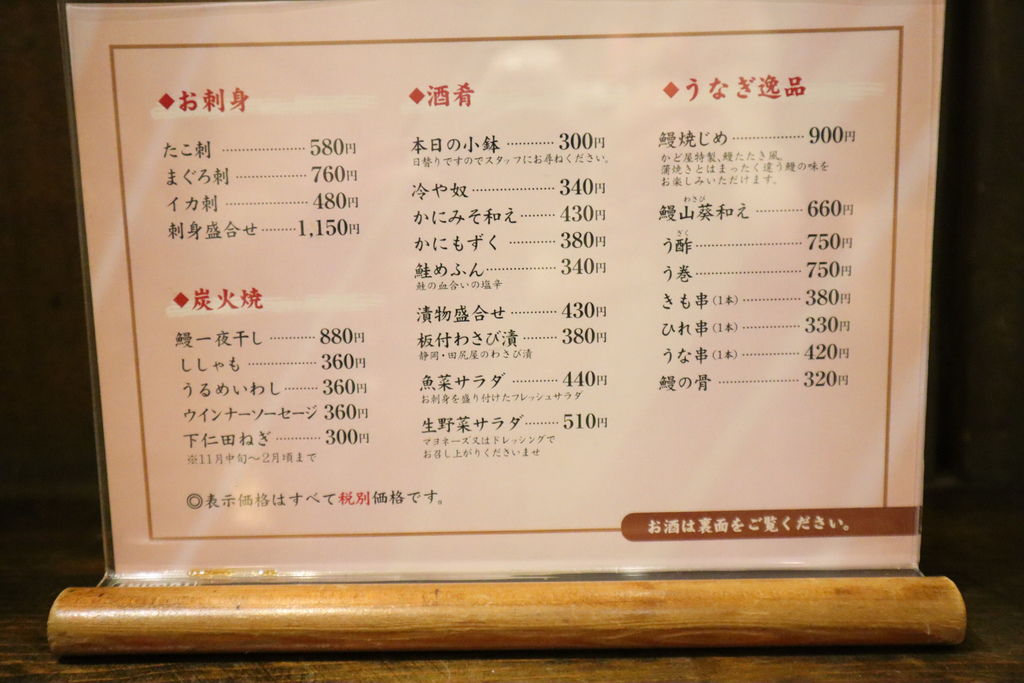 ◆お刺身
たこ刺 ………… 580円
まぐろ刺 ………… 760円
イカ刺 ………… 480円
刺身盛合せ ……… 1,150円
◆炭火焼
鰻一夜干し ……… 880円
ししゃも ………… 360円
うるめいわし ……… 360円
ウインナーソーセージ 360円
下仁田ねぎ ……… 300円
※11月中旬～2月頃まで
◎表示価格はすべて税別価格です。
◆酒肴
本日の小鉢 ……… 300円
日替りですのでスタッフにお尋ねください。
冷や奴 ………… 340円
かにみそ和え ……… 430円
かにもずく ……… 380円
鮭めふん ………… 340円
鮭の血合いの塩辛
漬物盛合せ ……… 430円
板付わさび漬 ……… 380円
静岡・田尻屋のわさび漬
魚菜サラダ ……… 440円
お刺身を盛り付けたフレッシュサラダ
生野菜サラダ ……… 510円
マヨネーズ又はドレッシングで
お召し上がりくださいませ
◆うなぎ逸品
鰻焼じめ ………… 900円
かど屋特製、鰻たたき風。
蒲焼きとはまったく違う鰻の味を
お楽しみいただけます。
わさび
鰻山葵和え ……… 660円
ざく
う酢 ………… 750円
う巻 ………… 750円
きも串(1本) ……… 380円
ひれ串(1本) ……… 330円
うな串(1本) ……… 420円
鰻の骨 ………… 320円
お酒は裏面をご覧ください。